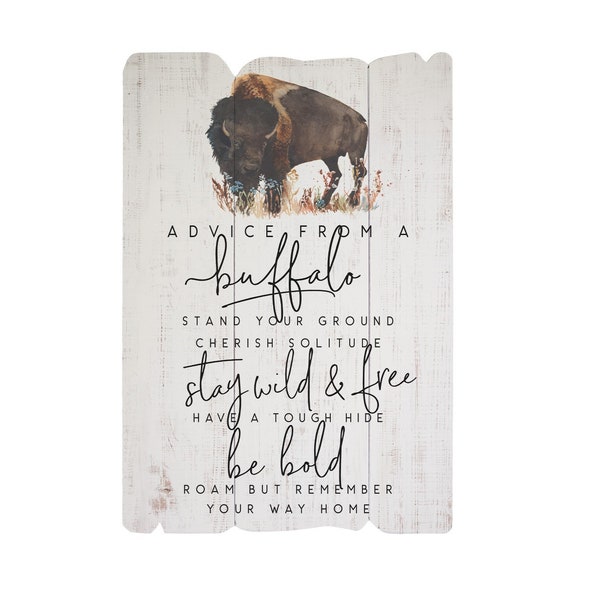 ADVICE FROM A
buffalo
STAND YOUR GROUND
CHERISH SOLITUDE
stay wild & free
HAVE A TOUGH HIDE
be bold
ROAM BUT REMEMBER
YOUR WAY HOME